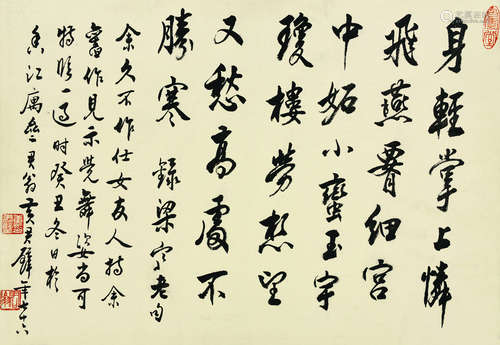 身輕掌上憐
飛燕腰細宮
中妬小蠻玉宇
瓊樓勞想望
又愁高處不
勝寒 錄梁寒老句
余久不作仕女友人持余
舊作見示覺舞姿尚可
特臨一過時癸丑冬日於
香江寓廬 君翁黃君璧年七十六